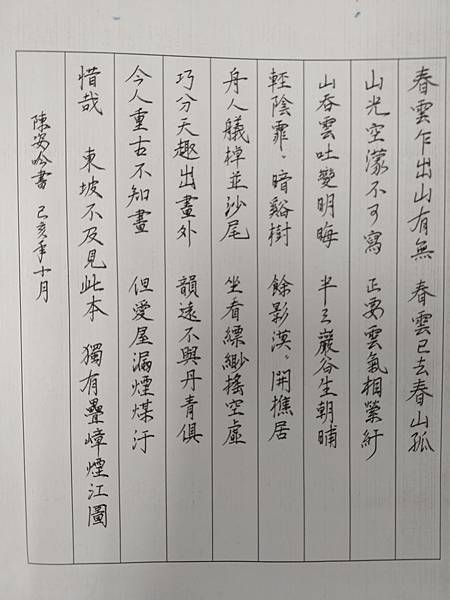 春雲乍出山有無 春雲已去春山孤
山光空濛不可寫 正要雲氣相縈紆
山吞雲吐變明晦 半天巖谷生朝晡
輕陰霏〻暗谿樹 餘影漠〻開樵居
舟人艤棹並沙尾 坐看縹緲搖空虛
巧分天趣出畫外 韻遠不與丹青俱
今人重古不知畫 但愛屋漏煙煤汙
惜哉 東坡不及見此本 獨有疊嶂煙江圖
陳安吟書 己亥年十月